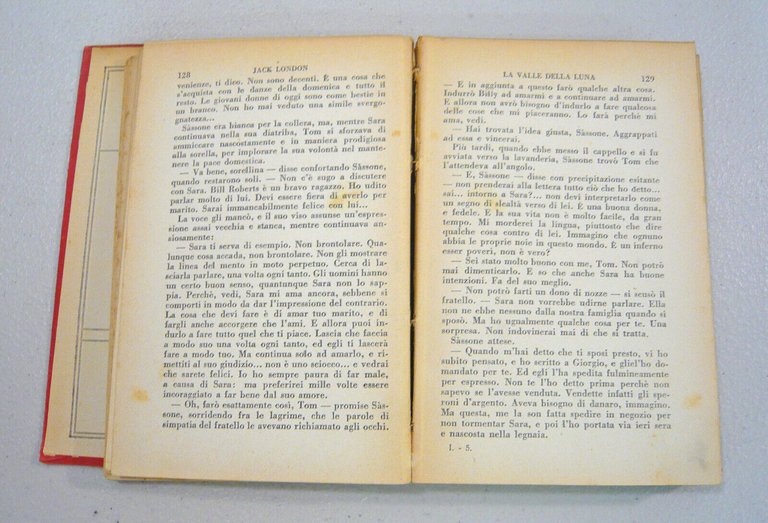 128 JACK LONDON
venienze, ti dico. Non sono decenti. È una cosa che
s'acquista con le danze della domenica e tutto il
resto. Le giovani donne di oggi sono come bestie in
un branco. Non ho mai veduto una simile svergo-
gnatezza...
Sàssone era bianca per la collera, ma, mentre Sara
continuava nella sua diatriba, Tom si sforzava di
ammiccare nascostamente e in maniera prodigiosa
alla sorella, per implorare la sua volontà nel mante-
nere la pace domestica.
— Va bene, sorellina — disse confortando Sàssone,
quando restarono soli. — Non c'è sugo a discutere
con Sara. Bill Roberts è un bravo ragazzo. Ho udito
parlar molto di lui. Devi essere fiera di averlo per
marito. Sarai immancabilmente felice con lui...
La voce gli mancò, e il suo viso assunse un'espres-
sione assai vecchia e stanca, mentre continuava an-
siosamente:
— Sara ti serva di esempio. Non brontolare. Qua-
lunque cosa accada, non brontolare. Non gli mostrare
la linea del mento in moto perpetuo. Cerca di la-
sciarla parlare, una volta ogni tanto. Gli uomini hanno
un certo buon senso, quantunque Sara non lo sap-
pia. Perchè, vedi, Sara mi ama ancora, sebbene si
comporti in modo da dar l'impressione del contrario.
La cosa che devi fare è di amar tuo marito, e di
fargli anche accorgere che l'ami. E allora puoi in-
durlo a fare tutto quel che ti piace. Lascia che faccia
a modo suo una volta ogni tanto, ed egli ti lascerà
fare a modo tuo. Ma continua solo ad amarlo, e ri-
mettiti al suo giudizio... non è uno sciocco... e vedrai
che sarete felici. Io ho sempre paura di far male,
a causa di Sara: ma preferirei mille volte essere
incoraggiato a far bene dal suo amore.
— Oh, farò esattamente così, Tom — promise Sàs-
sone, sorridendo fra le lagrime, che le parole di
simpatia del fratello le avevano richiamato agli occhi.
LA VALLE DELLA LUNA 129
— E in aggiunta a questo farò qualche altra cosa.
Indurrò Billy ad amarmi e a continuare ad amarmi.
E allora non avrò bisogno d'indurlo a fare qualcosa
delle cose che mi piaceranno. Lo farà perchè mi
ama, vedi.
— Hai trovata l'idea giusta, Sàssone. Aggrappati
ad essa e vincerai.
Più tardi, quando ebbe messo il cappello e si fu
avviata verso la lavanderia, Sàssone trovò Tom che
l'attendeva all'angolo.
— E, Sàssone — disse con precipitazione esitante
— non prenderai alla lettera tutto ciò che ho detto...
sai... intorno a Sara?... non devi interpretarlo come
un segno di slealtà verso di lei. È una buona donna,
e fedele. E la sua vita non è molto facile, da gran
tempo. Mi morderei la lingua, piuttosto che dire
qualche cosa contro di lei. Immagino che ognuno
abbia le proprie noie in questo mondo. È un inferno
esser poveri, non è vero?
— Sei stato molto buono con me, Tom. Non potrò
mai dimenticarlo. E so che anche Sara ha buone
intenzioni. Fa del suo meglio.
— Non potrò farti un dono di nozze — si scusò il
fratello. — Sara non vorrebbe udirne parlare. Ella
non ne ebbe nessuno dalla nostra famiglia quando si
sposò. Ma ho ugualmente qualche cosa per te. Una
sorpresa. Non indovinerai mai di che si tratta.
Sàssone attese.
— Quando m'hai detto che ti sposi presto, vi ho
subito pensato, e ho scritto a Giorgio, e gliel'ho do-
mandato per te. Ed egli l'ha spedita fulmineamente
per espresso. Non te l'ho detto prima perchè non
sapevo se l'avesse venduta. Vendette infatti gli spe-
roni d'argento. Aveva bisogno di danaro, immagino.
Ma questa, me la son fatta spedire in negozio per
non tormentar Sara, e poi l'ho portata via ieri sera
e nascosta nella legnaia.
1. - 5.